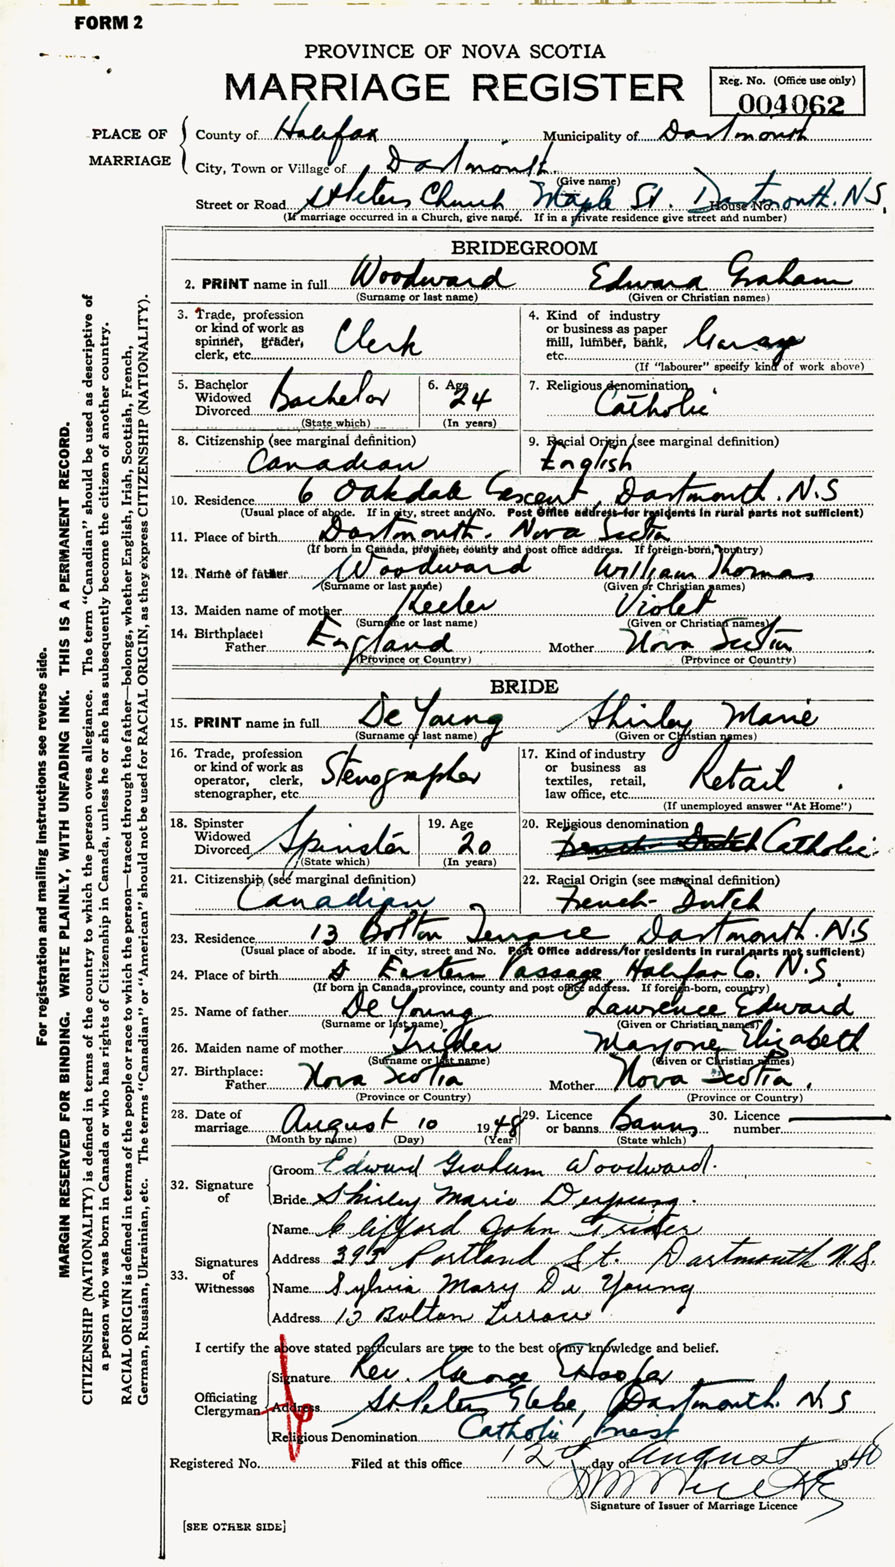 FORM 2
PROVINCE OF NOVA SCOTIA
MARRIAGE REGISTER
Reg. No. (Office use only)
004062
PLACE OF MARRIAGE
County of Halifax Municipality of Dartmouth
City, Town or Village of Dartmouth.
(Give name)
Street or Road St Peters Church Maple St. Dartmouth. N.S.
House No.
(If marriage occurred in a Church, give name. If in a private residence give street and number)
BRIDEGROOM
2. PRINT name in full Woodward Edward Graham
(Surname or last name) (Given or Christian names)
3. Trade, profession or kind of work as spinner, grader, clerk, etc. Clerk
4. Kind of industry or business as paper mill, lumber, bank, etc. Garage
(If "labourer" specify kind of work above)
5. Bachelor Widowed Divorced Bachelor
(State which)
6. Age 24
(In years)
7. Religious denomination Catholic
8. Citizenship (see marginal definition) Canadian
9. Racial Origin (see marginal definition) English
10. Residence 6 Oakdale Crescent, Dartmouth. N.S
(Usual place of abode. If in city, street and No. Post Office address for residents in rural parts not sufficient)
11. Place of birth Dartmouth. Nova Scotia
(If born in Canada, province, county and post office address. If foreign-born, country)
12. Name of father Woodward William Thomas
(Surname or last name) (Given or Christian names)
13. Maiden name of mother Keeler Violet
(Surname or last name) (Given or Christian names)
14. Birthplace:
Father England Mother Nova Scotia
(Province or Country) (Province or Country)
BRIDE
15. PRINT name in full De Young Shirley Marie
(Surname or last name) (Given or Christian names)
16. Trade, profession or kind of work as operator, clerk, stenographer, etc. Stenographer
17. Kind of industry or business as textiles, retail, law office, etc. Retail
(If unemployed answer "At Home")
18. Spinster Widowed Divorced Spinster
(State which)
19. Age 20
(In years)
20. Religious denomination French Dutch Catholic.
21. Citizenship (see marginal definition) Canadian
22. Racial Origin (see marginal definition) French-Dutch
23. Residence 13 Bolton Terrace Dartmouth. N.S
(Usual place of abode. If in city, street and No. Post Office address for residents in rural parts not sufficient)
24. Place of birth Eastern Passage Halifax Co. N.S
(If born in Canada, province, county and post office address. If foreign-born, country)
25. Name of father De Young Lawrence Edward
(Surname or last name) (Given or Christian names)
26. Maiden name of mother Trider Marjorie Elizabeth
(Surname or last name) (Given or Christian names)
27. Birthplace:
Father Nova Scotia Mother Nova Scotia.
(Province or Country) (Province or Country)
28. Date of marriage August 10 1948
(Month by name) (Day) (Year)
29. Licence or banns Banns
(State which)
30. Licence number
32. Signature of
Groom Edward Graham Woodward.
Bride Shirley Marie Deyoung.
33. Signatures of Witnesses
Name Clifford John Trider
Address 393 Portland St. Dartmouth N.S.
Name Sylvia Mary De Young
Address 13 Bolton Terrace
I certify the above stated particulars are true to the best of my knowledge and belief.
Officiating Clergyman
Signature Rev. George E Hooper
Address St Peters Glebe, Dartmouth. N S
Religious Denomination Catholic Priest
Registered No. Filed at this office 12th day of August 1948
Signature of Issuer of Marriage Licence
[SEE OTHER SIDE]
For registration and mailing instructions see reverse side.
MARGIN RESERVED FOR BINDING. WRITE PLAINLY, WITH UNFADING INK. THIS IS A PERMANENT RECORD.
CITIZENSHIP (NATIONALITY) is defined in terms of the country to which the person owes allegiance. The term "Canadian" should be used as descriptive of
a person who was born in Canada or who has rights of Citizenship in Canada, unless he or she has subsequently become the citizen of another country.
RACIAL ORIGIN is defined in terms of the people or race to which the person—traced through the father—belongs, whether English, Irish, Scottish, French,
German, Russian, Ukrainian, etc. The terms "Canadian" or "American" should not be used for RACIAL ORIGIN, as they express CITIZENSHIP (NATIONALITY).